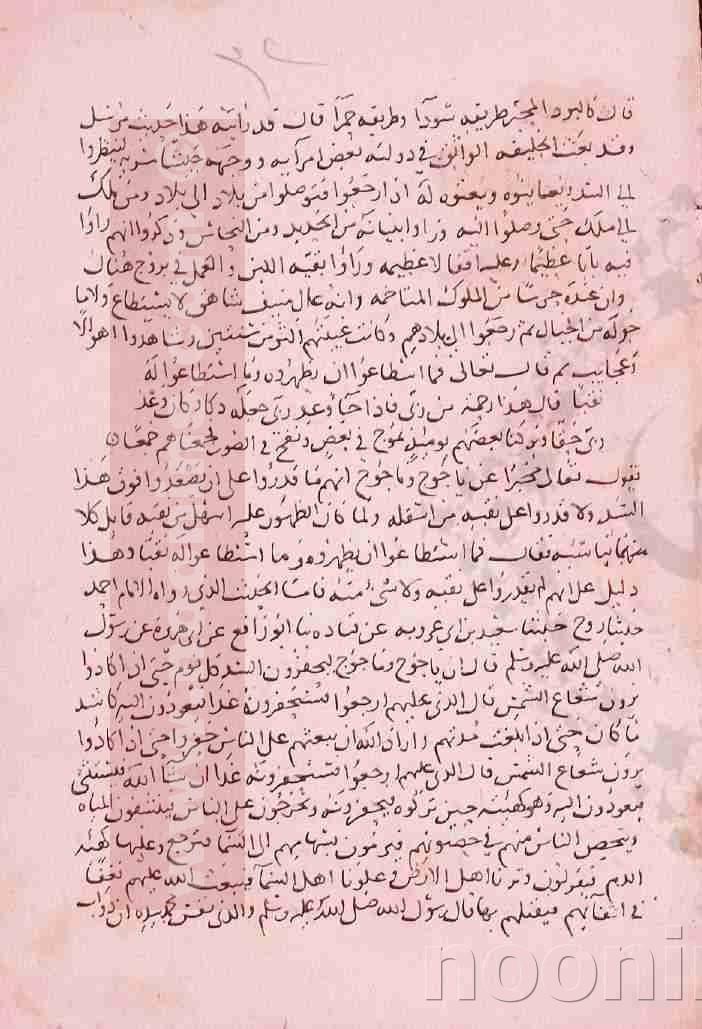 قال كالبرد المحبر طريقه سودآ وطريقه حمرآ قال قد رايته هذا حديث مرسل
وقد بعث الخليفه الواثق في دولته بعض امرآيه ووجهه جيشا سريه لينظروا
الي السد ويعاينوه وينعتوه له اذا رجعوا فتوصلوا من بلاد الي بلاد ومن ملك
الي ملك حتي وصلوا اليه وراوا بنيانه من الحديد ومن النحاس وذكروا انهم راوا
فيه بابا عظيما وعليه اقفالا عظيمه وراوا بقيه اللبن والعمل في برج هناك
وان عنده حرسا من الملوك المتاخمه وانه عال منيف شاهق لا يستطاع ولا ما
حوله من الجبال ثم رجعوا الي بلادهم وكانت غيبتهم اكثر من سنتين وشاهدوا اهوالا
وعجايب ثم قال تعالي فما اسطاعوا ان يظهروه وما استطاعوا له
نقبا قال هذا رحمة من ربي فاذا جآ وعد ربي جعله دكا وكان وعد
ربي حقا وتركنا بعضهم يوميذ يموج في بعض ونفخ في الصور فجمعناهم جمعا
يقول تعالي مخبرا عن ياجوج وماجوج انهم ما قدروا علي ان يصعدوا فوق هذا
السد ولا قدروا علي نقبه من اسفله ولما كان الظهور عليه اسهل من نقبه قابل كلا
منهما بما يناسبه فقال فما اسطاعوا ان يظهروه وما استطاعوا له نقبا وهذا
دليل علي انهم لم يقدروا علي نقبه ولا شي منه فاما الحديث الذي رواه الامام احمد
حدثنا روح حدثنا سعيد بن ابي عروبه عن قتاده ثنا ابو رافع عن ابي هريرة عن رسول
الله صلي الله عليه وسلم قال ان ياجوج وماجوج ليحفرون السد كل يوم حتي اذا كادوا
يرون شعاع الشمس قال الذي عليهم ارجعوا فستحفرونه غدا فيعودون اليه كاشد
ما كان حتي اذا بلغت مدتهم واراد الله ان يبعثهم علي الناس حفروا حتي اذا كادوا
يرون شعاع الشمس قال الذي عليهم ارجعوا فستحفرونه غدا ان شآ الله فيستثني
فيعودون اليه وهو كهيئته حين تركوه فيحفرونه ويخرجون علي الناس فينشفون المياه
ويتحصن الناس منهم في حصونهم فيرمون بسهامهم الي السمآ فترجع وعليها كهيئه
الدم فيقولون قهرنا اهل الارض وعلونا اهل السمآ فيبعث الله عليهم نغفا
في اقفآيهم فيقتلهم بها قال رسول الله صلي الله عليه وسلم والذي نفس محمد بيده ان دواب
noonin